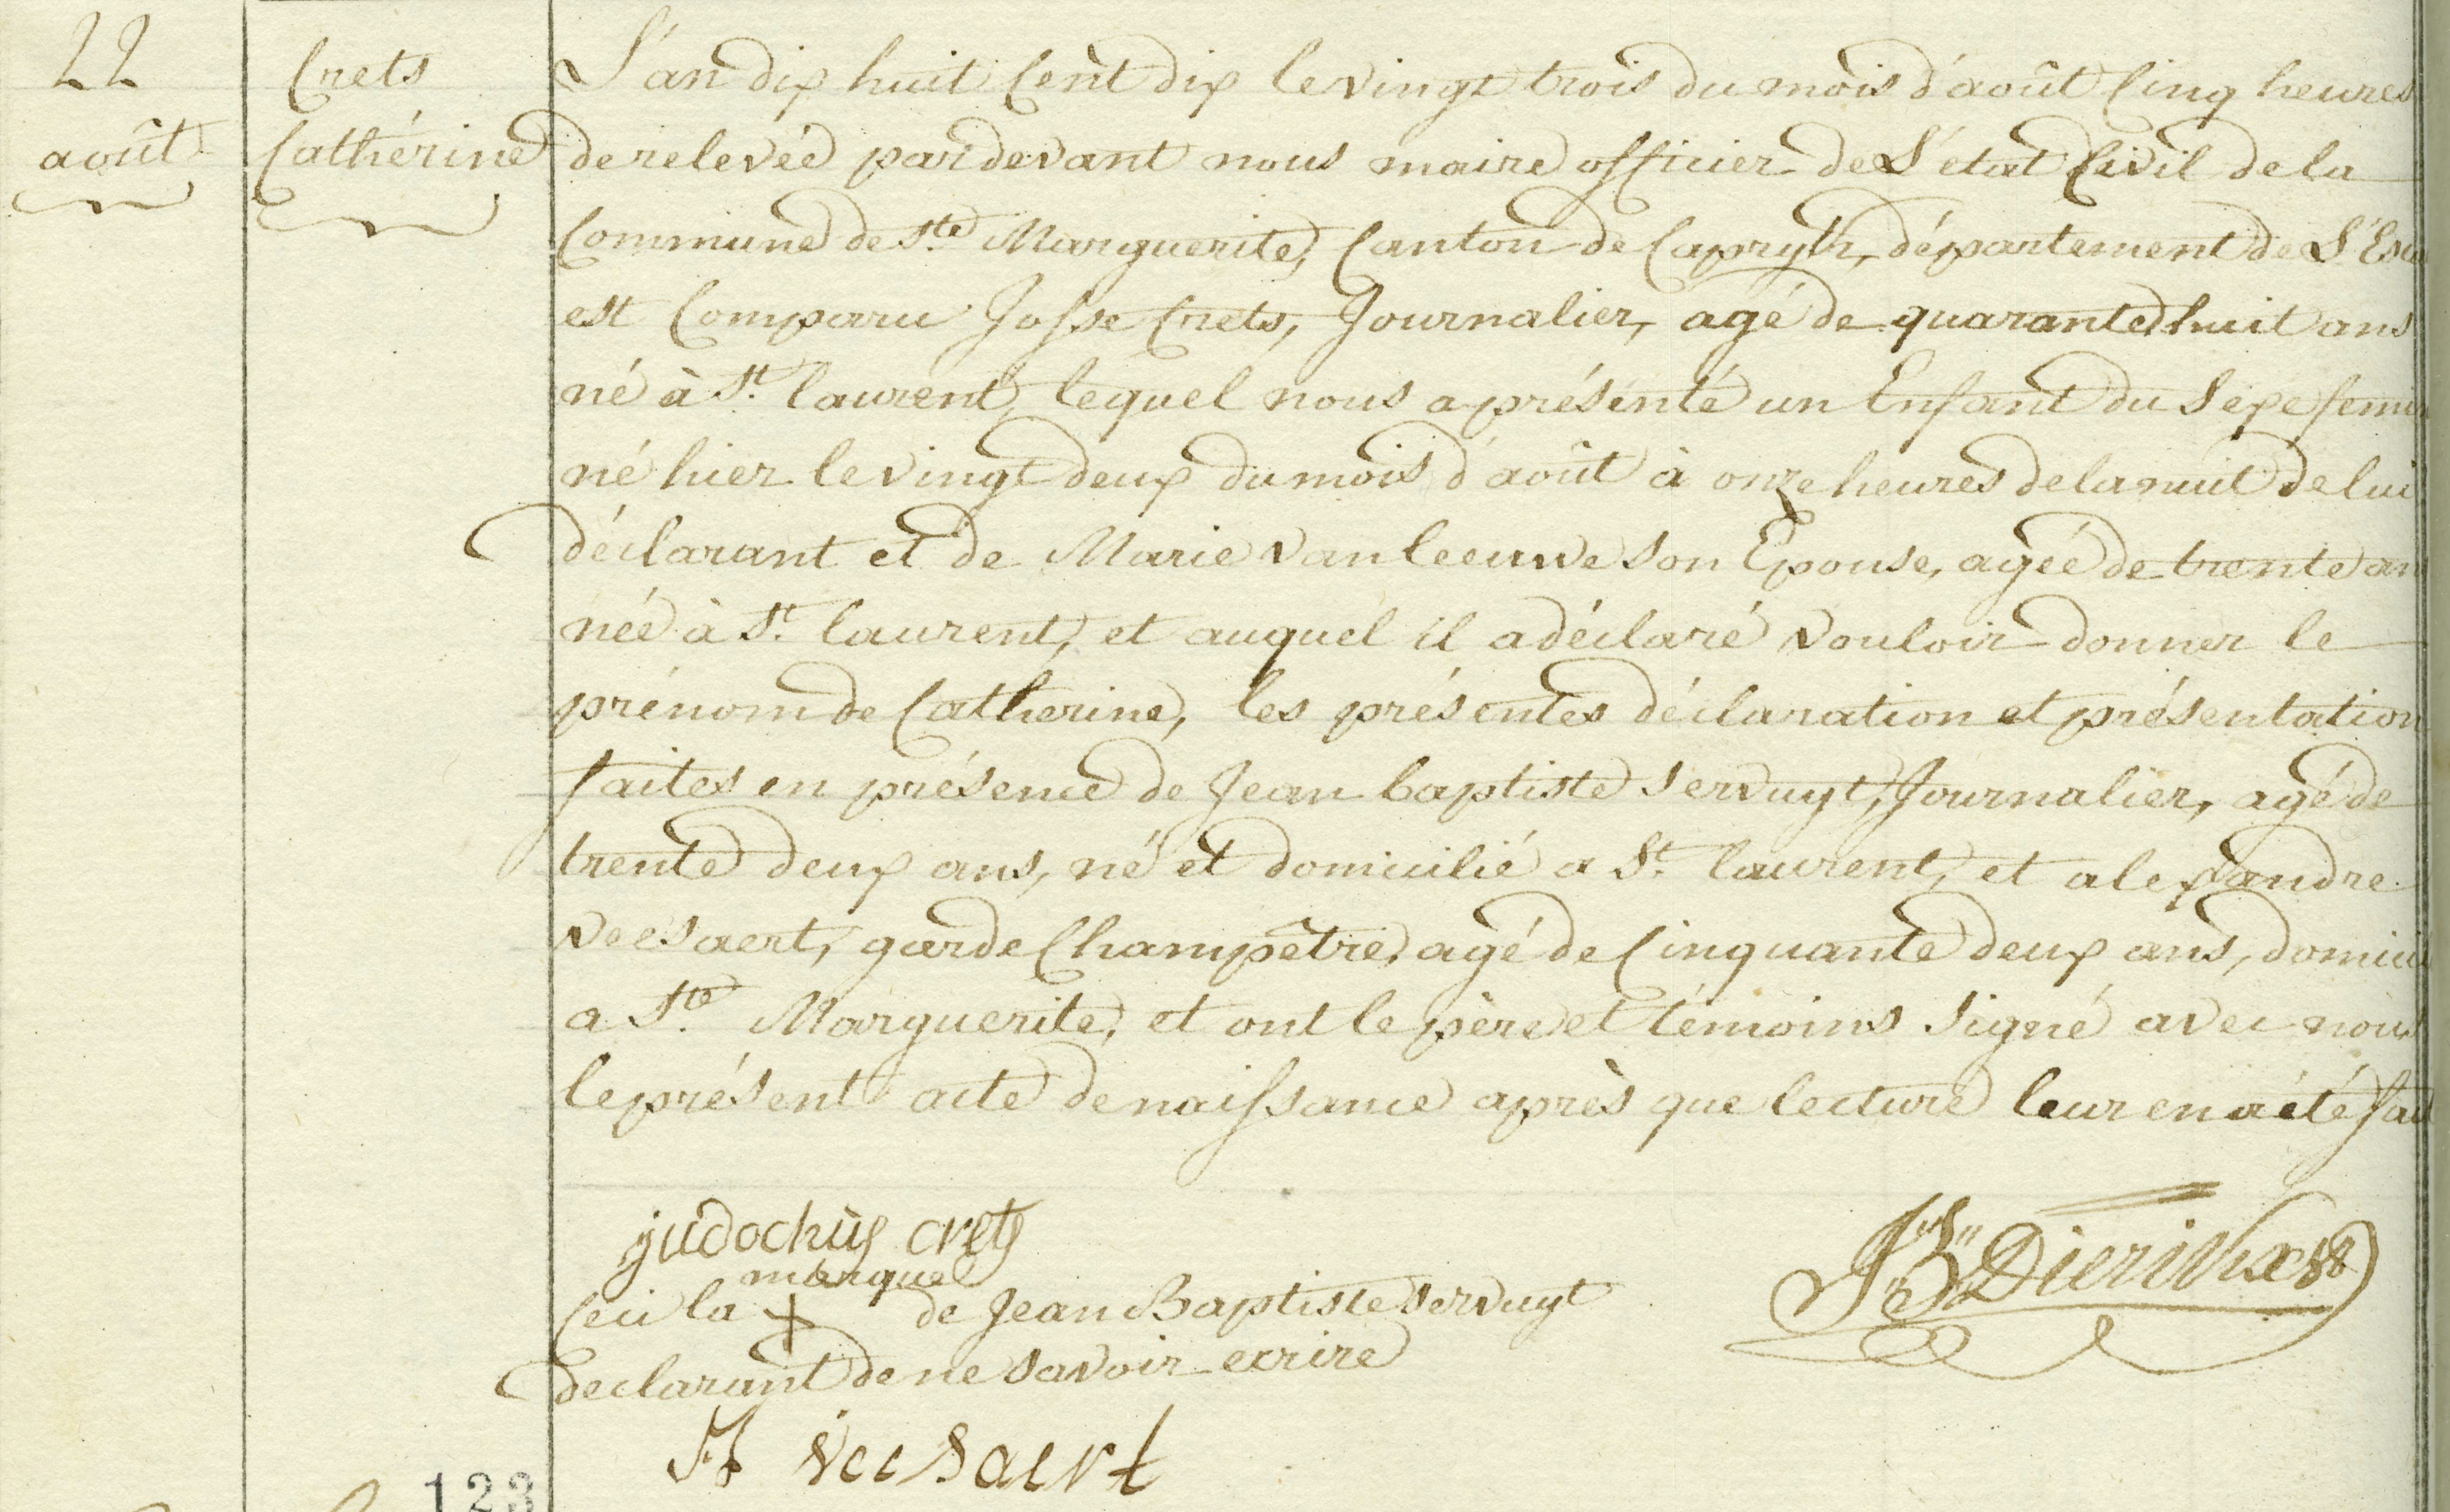 22
août
Crets
Cathérine
L'an dix huit Cent dix le vingt trois du mois d'août Cinq heures
de relevée pardevant nous maire officier de L'état Civil de la
Commune de Ste Marguerite, Canton de Capryk, département de L'Esca
est Comparu Josse Crets, Journalier, agé de quarante huit ans
né à St. laurent, lequel nous a présenté un Enfant du Sexe femin
né hier le vingt deux du mois d'août à onze heures de la nuit de lui
déclarant et de Marie van leeuwe son Epouse, agée de trente an
née à St. laurent, et auquel il a déclaré vouloir donner le
prénom de Catherine, les présentes déclaration et présentation
faites en présence de Jean baptiste Servuyt, Journalier, agé de
trente deux ans, né et domicilié a St. laurent, et alexandre
veesaert, garde Champêtre, agé de Cinquante deux ans, domicil
a Ste Marguerite, et ont le père et témoins signé avec nous
le présent acte de naissance après que lecture leur en a été fait
judochus crets
marque
Ceci la + de Jean Baptiste Servuyt
declarant de ne savoir ecrire
J B Dierickx
A veesaert
123